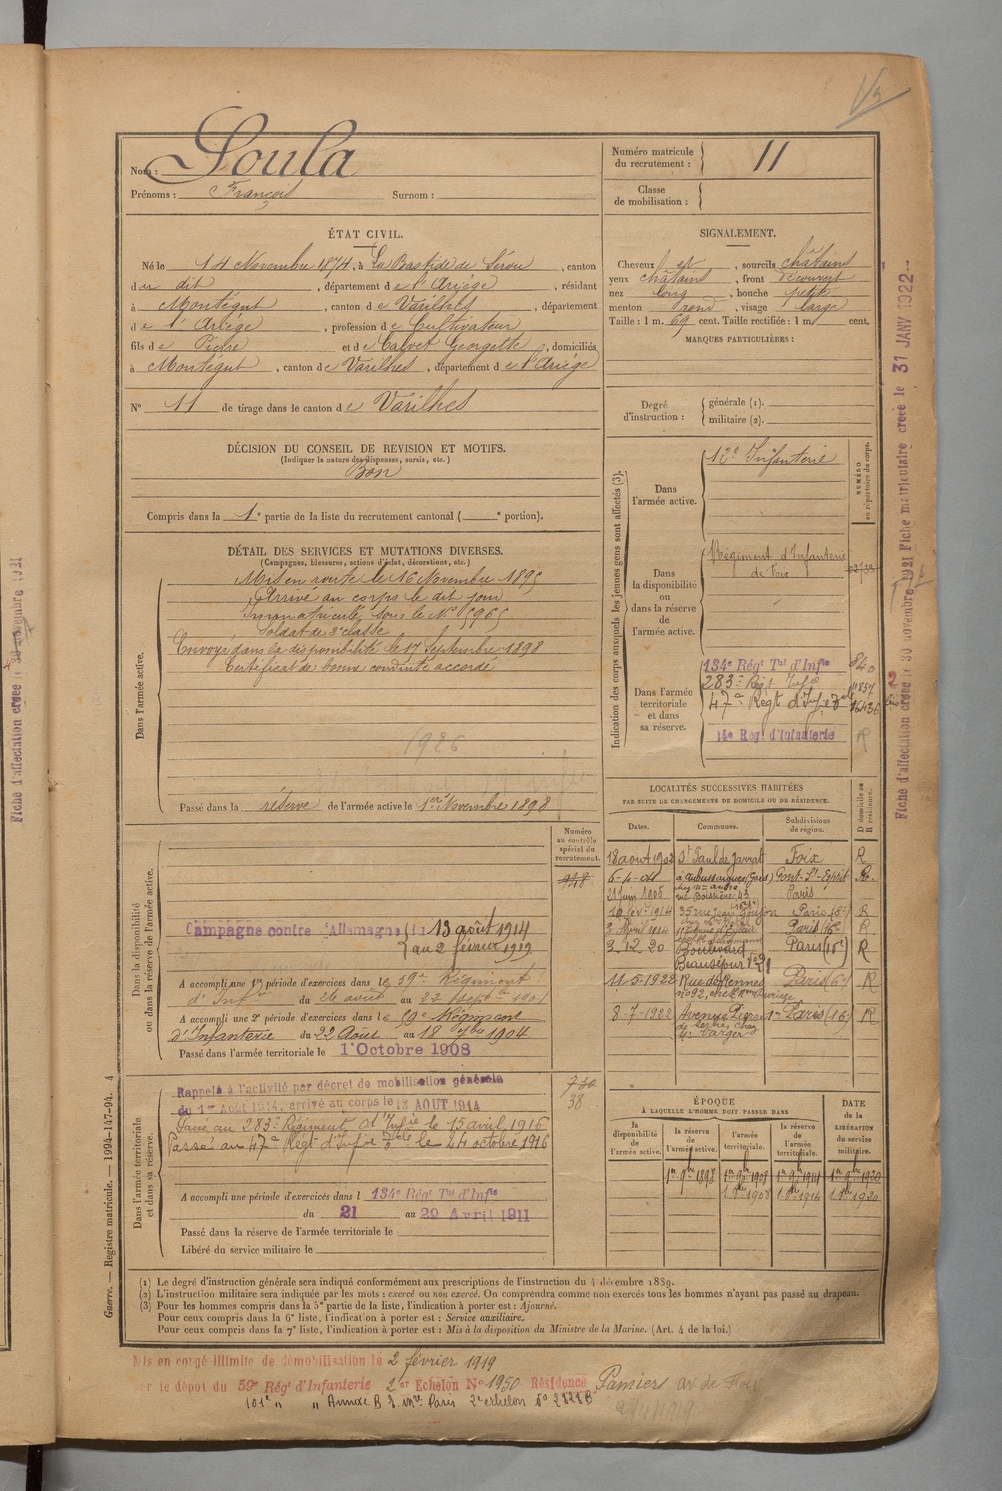 Nom : Soula
Prénoms : François Surnom :
Numéro matricule
du recrutement : 11
Classe
de mobilisation :
ÉTAT CIVIL.
Né le 14 Novembre 1874, à La Bastide de Sérou, canton
du dit, département de l'Ariège, résidant
à Montégut, canton de Varilhes, département
de l'Ariège, profession de Cultivateur
fils de Pierre et de Calvet Georgette, domiciliés
à Montégut, canton de Varilhes, département de l'Ariège
N° 11 de tirage dans le canton de Varilhes
DÉCISION DU CONSEIL DE REVISION ET MOTIFS.
(Indiquer la nature des dispenses, sursis, etc.)
Bon
Compris dans la 1e partie de la liste du recrutement cantonal ( e portion).
SIGNALEMENT.
Cheveux et, sourcils châtains
yeux châtains, front découvert
nez long, bouche petite
menton rond, visage large
Taille : 1 m. 69 cent. Taille rectifiée : 1 m cent.
MARQUES PARTICULIÈRES :
Degré
d'instruction :
générale (1).
militaire (2).
DÉTAIL DES SERVICES ET MUTATIONS DIVERSES.
(Campagnes, blessures, actions d'éclat, décorations, etc.)
Dans l'armée active.
Mis en route le 16 Novembre 1895
Arrivé au corps le dit jour
Immatriculé sous le N° 5965
Soldat de 2e classe
Envoyé dans la disponibilité le 17 Septembre 1898
Certificat de bonne conduite accordé
1926
Passé dans la réserve de l'armée active le 1er Novembre 1898
Indication des corps auxquels les jeunes gens sont affectés (3).
NUMÉRO
au répertoire du corps.
Dans
l'armée active.
12e Infanterie
Dans
la disponibilité
ou
dans la réserve
de
l'armée active.
Régiment d'Infanterie
de Foix
Dans l'armée
territoriale
et dans
sa réserve.
134e Régt Tal d'Infie 840
283e Régt Infie
47e Régt d'Infie
14e Reg d'Infanterie R
Dans la disponibilité
ou dans la réserve de l'armée active.
Numéro
au contrôle
spécial du
recrutement.
948
Campagne contre l'Allemagne du 13 août 1914
au 2 février 1919
A accompli une 1re période d'exercices dans le 59e Régiment
d'Infie du 26 août au 22 septbre 1901
A accompli une 2e période d'exercices dans le 59e Régiment
d'Infanterie du 22 Août au 18 7bre 1904
Passé dans l'armée territoriale le 1er Octobre 1908
LOCALITÉS SUCCESSIVES HABITÉES
PAR SUITE DE CHANGEMENTS DE DOMICILE OU DE RÉSIDENCE.
Dates. Communes. Subdivisions
de région.
D domicile ou
R résidence.
18 août 1902 St Paul de Jarrat Foix R
6-4-04 à Aubussargues (Gard) Pont-St-Esprit R.
21 Juin 1905 rue Boissière 43 Paris
10 fév. 1914 35 rue Jean Goujon Paris (8e) R
2 Avril 1914 Paris (16e) R
2 12 20 Boulevard Paris (16e) R
Beauséjour
11-5-1922 Rue de Rennes Paris (6e) R
n° 92, chez
8-7-1922 Avenue Pierre 1er Paris (16) R
de Serbie chez
Mr Varger
Dans l'armée territoriale
et dans sa réserve.
730
38
Rappelé à l'activité par décret de mobilisation générale
du 1er Août 1914, arrivé au corps le 13 AOUT 1914
Passé au 283e Régiment d'Infie le 15 avril 1916
Passé au 47e Régt d'Infie le 24 octobre 1916
A accompli une période d'exercices dans l 134e Régt Tal d'Infie
du 21 au 29 Avril 1911
Passé dans la réserve de l'armée territoriale le
Libéré du service militaire le
ÉPOQUE
À LAQUELLE L'HOMME DOIT PASSER DANS
DATE
de la
LIBÉRATION
du service
militaire.
la
disponibilité
de
l'armée active.
la réserve
de
l'armée active.
l'armée
territoriale.
la réserve
de
l'armée
territoriale.
1er 9bre 1898 1er 9bre 1908 1er 9bre 1914 1er 9bre 1920
1 8bre 1908 1 8bre 1914 1 8bre 1920
(1) Le degré d'instruction générale sera indiqué conformément aux prescriptions de l'instruction du 4 décembre 1889.
(2) L'instruction militaire sera indiquée par les mots : exercé ou non exercé. On comprendra comme non exercés tous les hommes n'ayant pas passé au drapeau.
(3) Pour les hommes compris dans la 5e partie de la liste, l'indication à porter est : Ajourné.
Pour ceux compris dans la 6e liste, l'indication à porter est : Service auxiliaire.
Pour ceux compris dans la 7e liste, l'indication à porter est : Mis à la disposition du Ministre de la Marine. (Art. 4 de la loi.)
Guerre. — Registre matricule. — 1994-147-94. 4
Mis en congé illimité de démobilisation le 2 février 1919
par le dépôt du 59e Régt d'Infanterie 2er Echelon N° 1950 Résidence Pamiers av. de Foix
101e " " Annexe B Paris 2e échelon
Fiche d'affectation créée le 30 novembre 1921 Fiche matriculaire créée le 31 JANV 1922
Fiche d'affectation créée le 30 novembre 1921